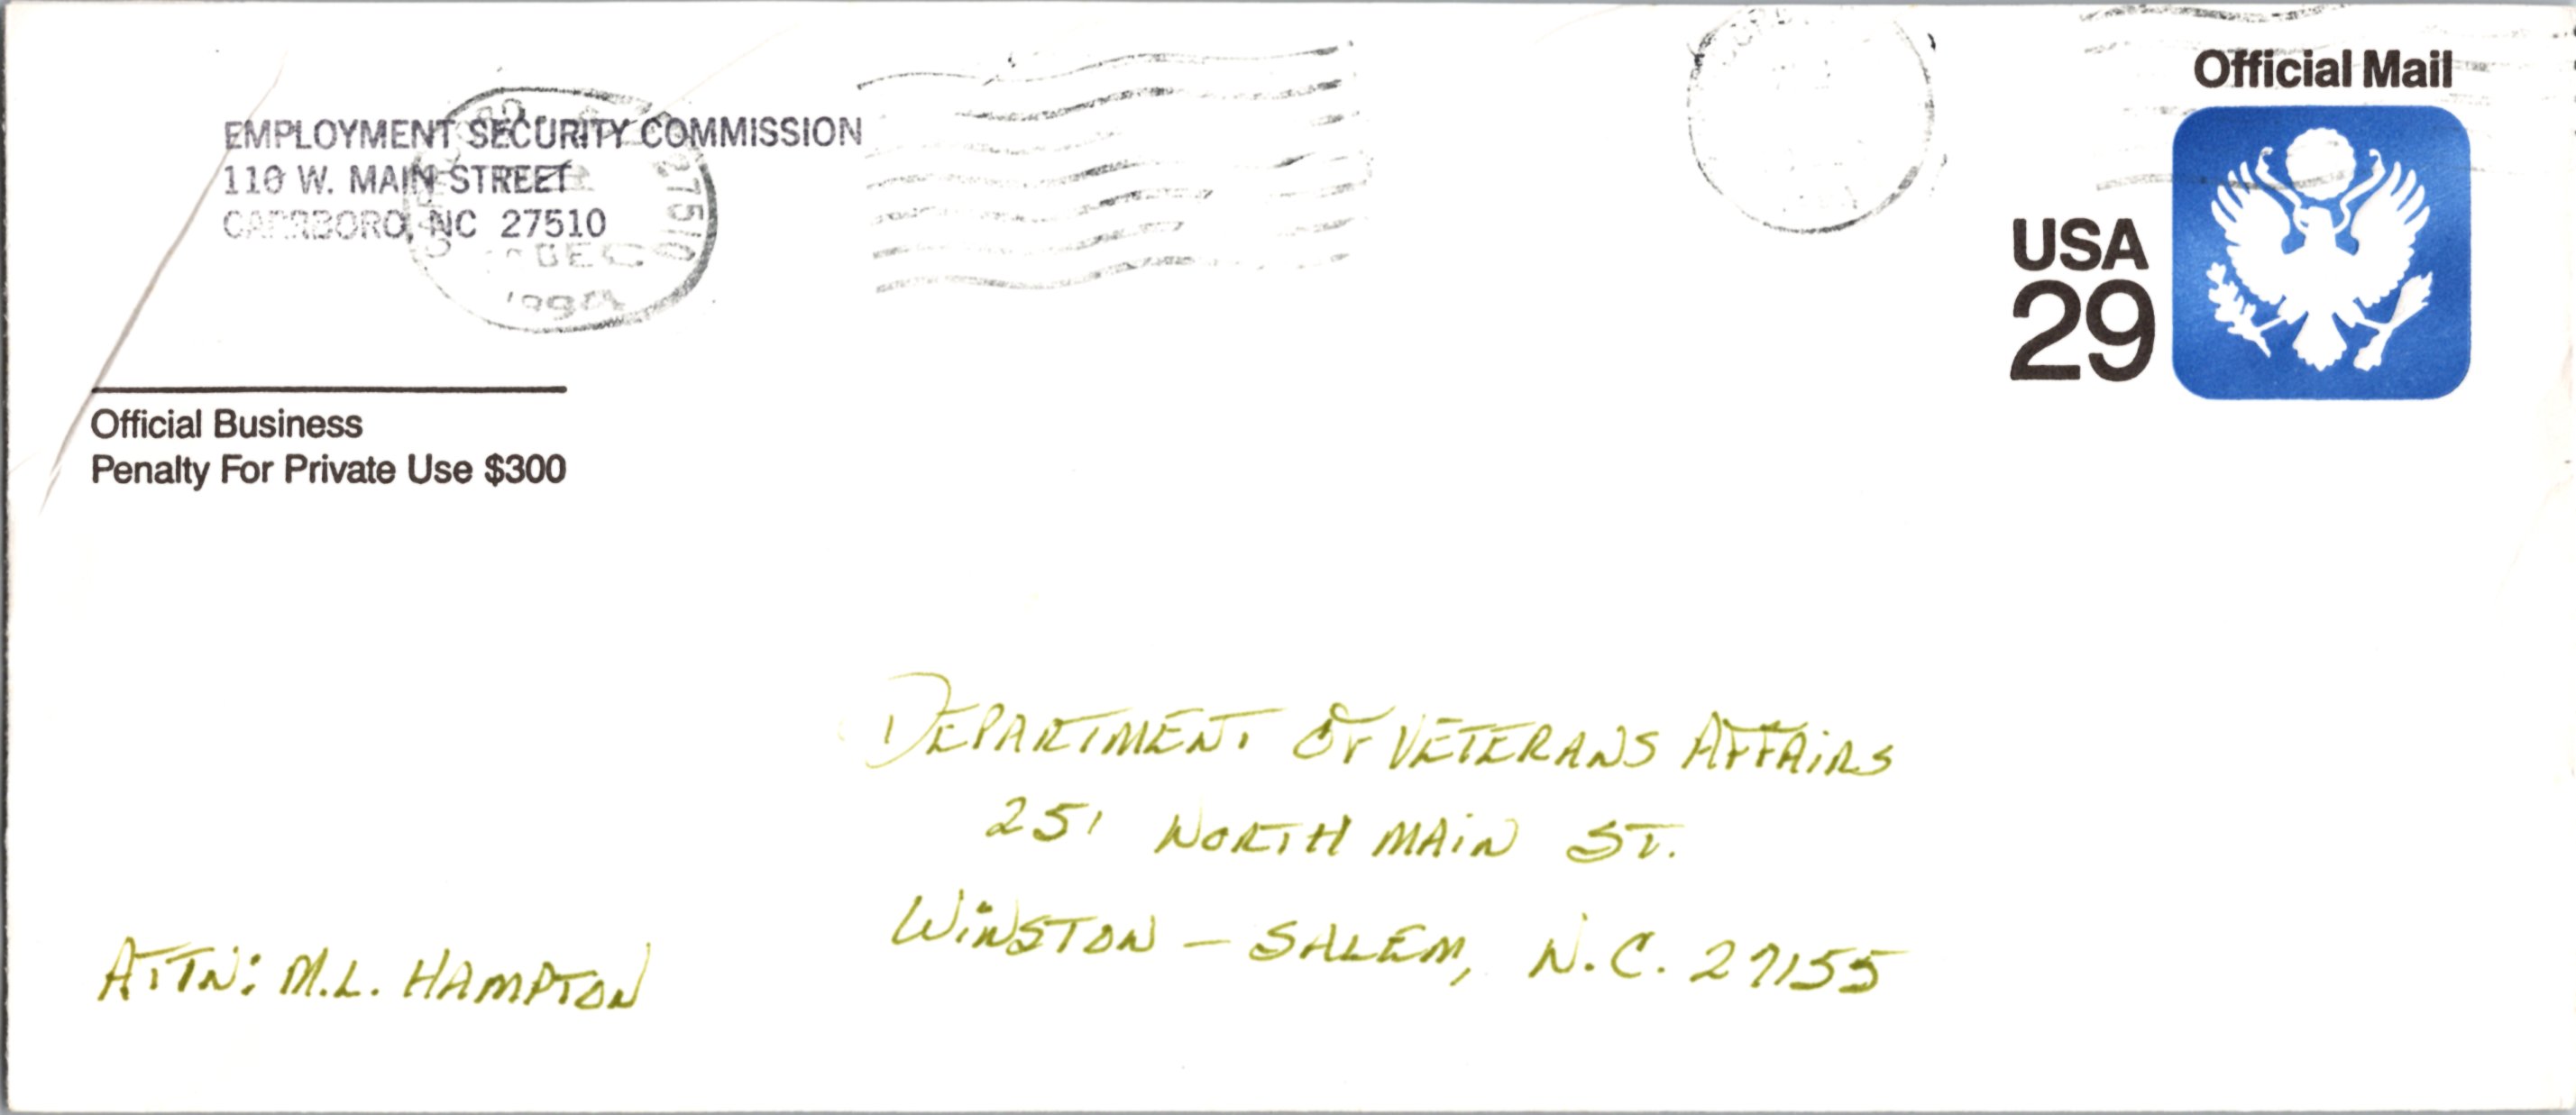 EMPLOYMENT SECURITY COMMISSION
110 W. MAIN STREET
CARRBORO, NC 27510
27510
DEC
Official Business
Penalty For Private Use $300
Official Mail
USA
29
DEPARTMENT OF VETERANS AFFAIRS
251 NORTH MAIN ST.
WINSTON - SALEM, N.C. 27155
ATTN: M.L. HAMPTON